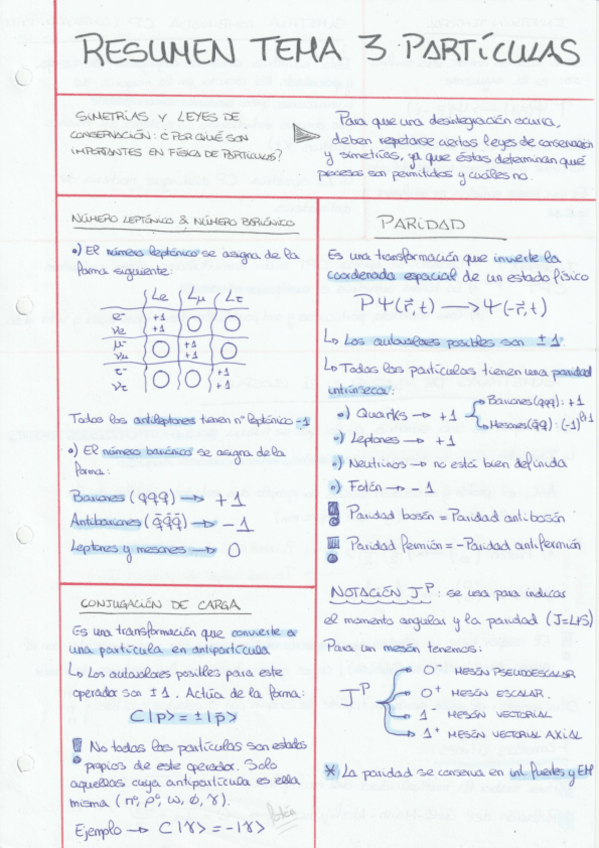 RESUMEN TEMA 3 PARTÍCULAS
SIMETRÍAS Y LEYES DE
CONSERVACIÓN: ¿POR QUÉ SON
IMPORTANTES EN FÍSICA DE PARTÍCULAS?
Para que una desintegración ocurra,
deben respetarse ciertas leyes de conservación
y simetrías, ya que éstas determinan qué
procesos son permitidos y cuáles no.
NÚMERO LEPTÓNICO & NÚMERO BARIÓNICO
•) El número leptónico se asigna de la
forma siguiente:
Le Lμ Lτ
e⁻ +1
νe +1 0 0
μ⁻ +1
νμ 0 +1 0
τ⁻ +1
ντ 0 0 +1
Todos los antileptones tienen nº leptónico -1
•) El número bariónico se asigna de la
forma:
Bariones (qqq) → +1
Antibariones (q̄q̄q̄) → -1
Leptones y mesones → 0
CONJUGACIÓN DE CARGA
Es una transformación que convierte a
una partícula en antipartícula
↳ Los autovalores posibles para este
operador son ±1. Actúa de la forma:
C|p> = ±|p̄>
No todas las partículas son estados
propios de este operador. Solo
aquellas cuya antipartícula es ella
misma (π⁰, ρ⁰, ω, ϕ, γ).
fotón
Ejemplo → C|γ> = -|γ>
PARIDAD
Es una transformación que invierte la
coordenada espacial de un estado físico
PΨ(r⃗,t) → Ψ(-r⃗,t)
↳ Los autovalores posibles son ±1.
↳ Todas las partículas tienen una paridad
intrínseca:
•) Quarks → +1
Bariones (qqq): +1
Mesones (qq̄): (-1)ˡ⁺¹
•) Leptones → +1
•) Neutrinos → no está bien definida
•) Fotón → -1
Paridad bosón = Paridad antibosón
Paridad fermión = -Paridad antifermión
NOTACIÓN Jᴾ: se usa para indicar
el momento angular y la paridad (J=L+S)
Para un mesón tenemos:
Jᴾ
0⁻ MESÓN PSEUDOESCALAR
0⁺ MESÓN ESCALAR.
1⁻ MESÓN VECTORIAL
1⁺ MESÓN VECTORIAL AXIAL
* La paridad se conserva en int. fuertes y EM